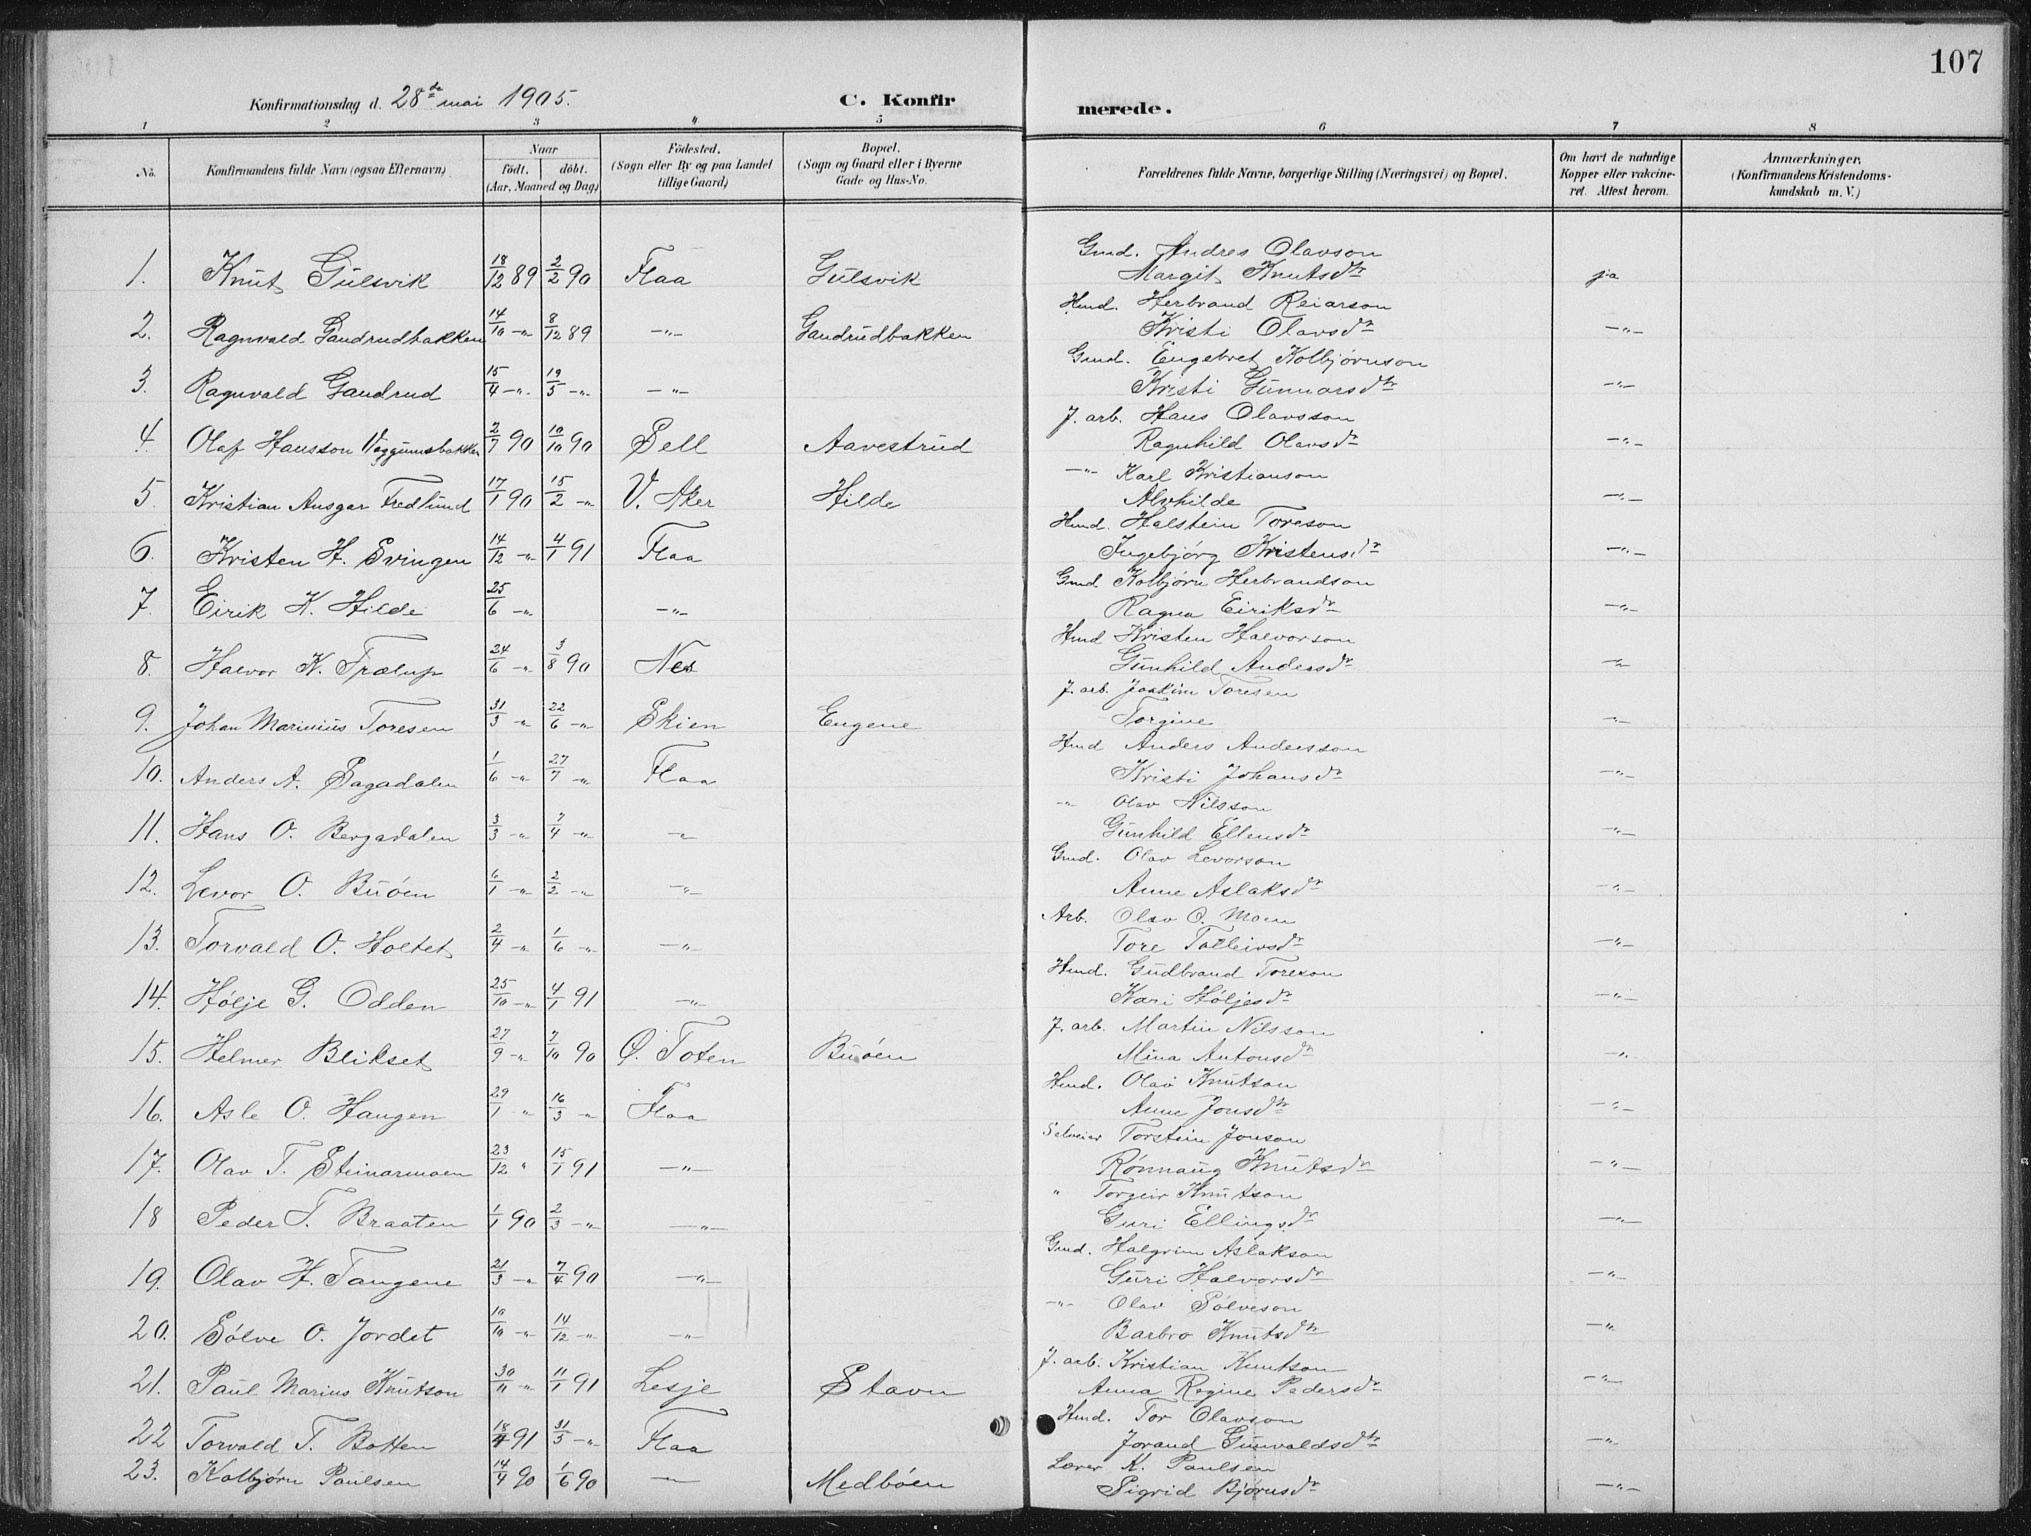 107
Konfirmationsdag d. 28de mai 1905.
C. Konfir
merede.
1 2 3 4 5 6 7 8
No.
Konfirmandens fulde Navn (ogsaa Efternavn)
Naar
födt. döbt.
(Aar, Maaned og Dag)
Födested.
(Sogn eller By og paa Landet
tillige Gaard)
Bopæl.
(Sogn og Gaard eller i Byerne
Gade og Hus-No.
Forældrenes fulde Navne, borgerlige Stilling (Næringsvei) og Bopæl.
Om havt de naturlige
Kopper eller vakcine-
ret. Attest herom.
Anmærkninger.
(Konfirmandens Kristendoms-
kundskab m. V.)
Gmd. Andres Olavson
1. Knut Gulsvik 18/12 89 2/2 90 Flaa Gulsvik Margit Knutsdtr ja
Hmd. Herbrand Reiarson
2. Ragnvald Gandrudbakken 14/10 -"- 8/12 89 -"- Gandrudbakken Kristi Olavsdtr -"-
Gmd. Engebret Kolbjørnson
3. Ragnvald Gandrud 15/4 -"- 19/5 -"- -"- Kristi Gunnarsdtr -"-
J. arb. Hans Olavsson
4. Olaf Hansson Væggumsbakken 2/7 90 10/10 90 Sell Aavestrud Ragnhild Olavsdtr -"-
-"- Karl Kristianson
5. Kristian Ansgar Fredlund 17/1 90 15/2 -"- V. Aker Hilde Alvhilde -"-
Hmd. Halstein Toreson
6. Kristen H. Svingen 14/12 -"- 4/1 91 Flaa Ingebjørg Kristensdtr -"-
Gmd Kolbjørn Herbrandson
7. Eirik K. Hilde 25/6 -"- -"- Ragna Eiriksdtr -"-
Hmd Kristen Halvorson
8. Halvor K. Trælup 24/6 -"- 3/8 90 Nes Gunhild Andersdtr -"-
J. arb. Joakim Toresen
9. Johan Marinius Toresen 31/3 -"- 22/6 -"- Skien Eugene Torgine -"-
Hmd Anders Andersson
10. Anders A. Sagadalen 1/6 -"- 27/7 -"- Flaa Kristi Johansdtr -"-
-"- Olav Nilsson
11. Hans O. Bergadalen 3/3 -"- 7/4 -"- -"- Gunhild Ellensdtr -"-
Gmd. Olav Levorson
12. Levor O. Buöen 6/1 -"- 2/2 -"- -"- Anne Aslaksdtr -"-
Arb. Olav O. Moen
13. Torvald O. Holtet 2/4 -"- 1/6 -"- -"- Tore Tolleivsdtr -"-
Hmd. Gudbrand Toreson
14. Hølje G. Odden 25/10 -"- 4/1 91 -"- Kari Høljesdtr -"-
J. arb. Martin Nilsson
15. Helmer Blikset 27/9 -"- 7/10 90 Ø. Toten Buöen Mina Antonsdtr -"-
Hmd. Olav Knutson
16. Asle O. Haugen 29/1 " 16/3 -"- Flaa Anne Jonsdtr -"-
Selveier Torstein Jonson
17. Olav T. Steinarmoen 23/12 " 15/1 91 -"- Rønnaug Knutsdtr -"-
" Torgeir Knutson
18 Peder T. Braaten 1/1 90 2/3 -"- -"- Guri Ellingsdtr -"-
Gmd. Halgrim Aslakson
19. Olav H. Tangene 21/3 -"- 7/4 90 -"- Guri Halvorsdtr -"-
-"- Olav Sølveson
20. Sølve O. Jordet 10/10 -"- 14/12 -"- -"- Barbro Knutsdtr -"-
J. arb. Kristian Knutson
21. Paul Marius Knutson 30/11 -"- 11/1 91 Lesje Stavn Anna Regine Pedersdtr -"-
Hmd. Tor Olavson
22 Torvald T. Botten 18/4 91 31/5 -"- Flaa Jorand Gunvaldsdtr -"-
Lærer K. Paulsen
23. Kolbjørn Paulsen 14/4 90 1/6 90 -"- Medböen Sigrid Bjørnsdtr -"-